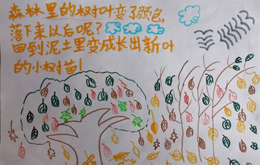 森林里的树叶变了颜色，
落下来以后呢？
回到泥土里变成长出新叶
的小树苗！